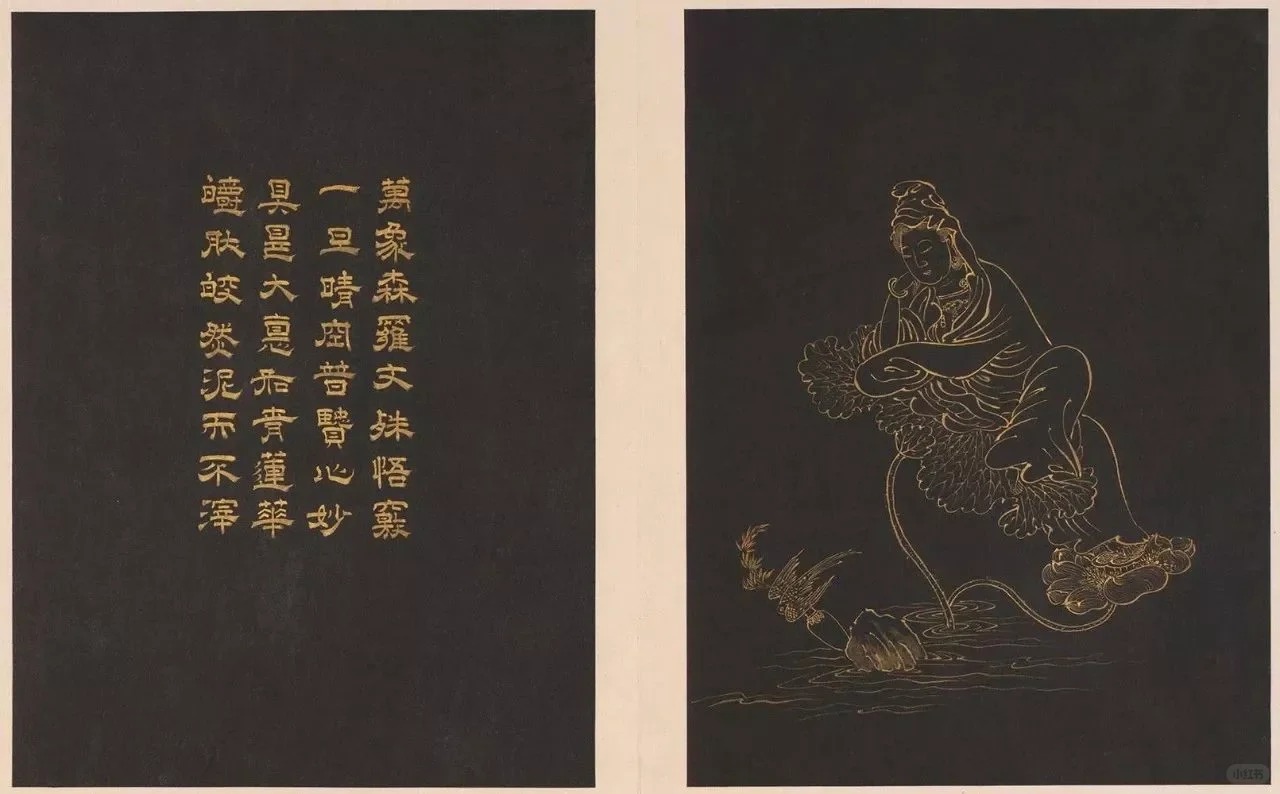 萬象森羅文殊悟竅
一旦晴空普賢心妙
具昰大惪如青蓮華
皭肰皎然泥而不滓
小红书